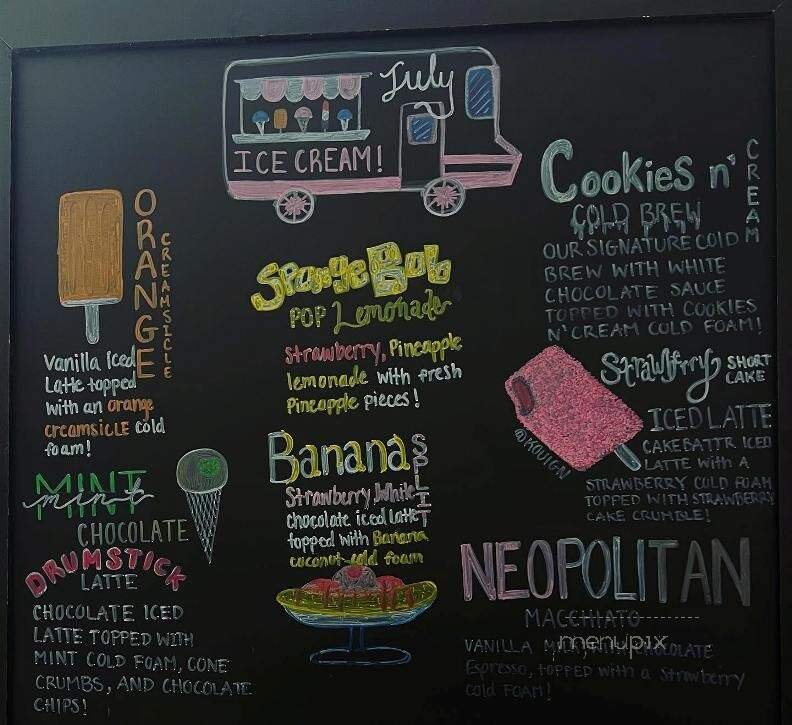 July
ICE CREAM!
ORANGE
CREAMSICLE
Vanilla Iced
Latte topped
with an orange
creamsicle cold
foam!
MINT
mint
CHOCOLATE
DRUMSTICK
LATTE
CHOCOLATE ICED
LATTE TOPPED WITH
MINT COLD FOAM, CONE
CRUMBS, AND CHOCOLATE
CHIPS!
SpongeBob
POP Lemonade
Strawberry, Pineapple
lemonade with fresh
Pineapple pieces!
Banana
SPLIT
Strawberry, White
chocolate iced Latte
topped with Banana
coconut cold foam
Cookies n'
CREAM
COLD BREW
OUR SIGNATURE COLD
BREW WITH WHITE
CHOCOLATE SAUCE
TOPPED WITH COOKIES
N' CREAM COLD FOAM!
Strawberry SHORT
CAKE
ICED LATTE
CAKEBATTR ICED
LATTE WITH A
STRAWBERRY COLD FOAM
TOPPED WITH STRAWBERRY
CAKE CRUMBLE!
NEOPOLITAN
MACCHIATO
VANILLA CHOCOLATE
Espresso, TOPPED with a Strawberry
cold FOAM!
menupix